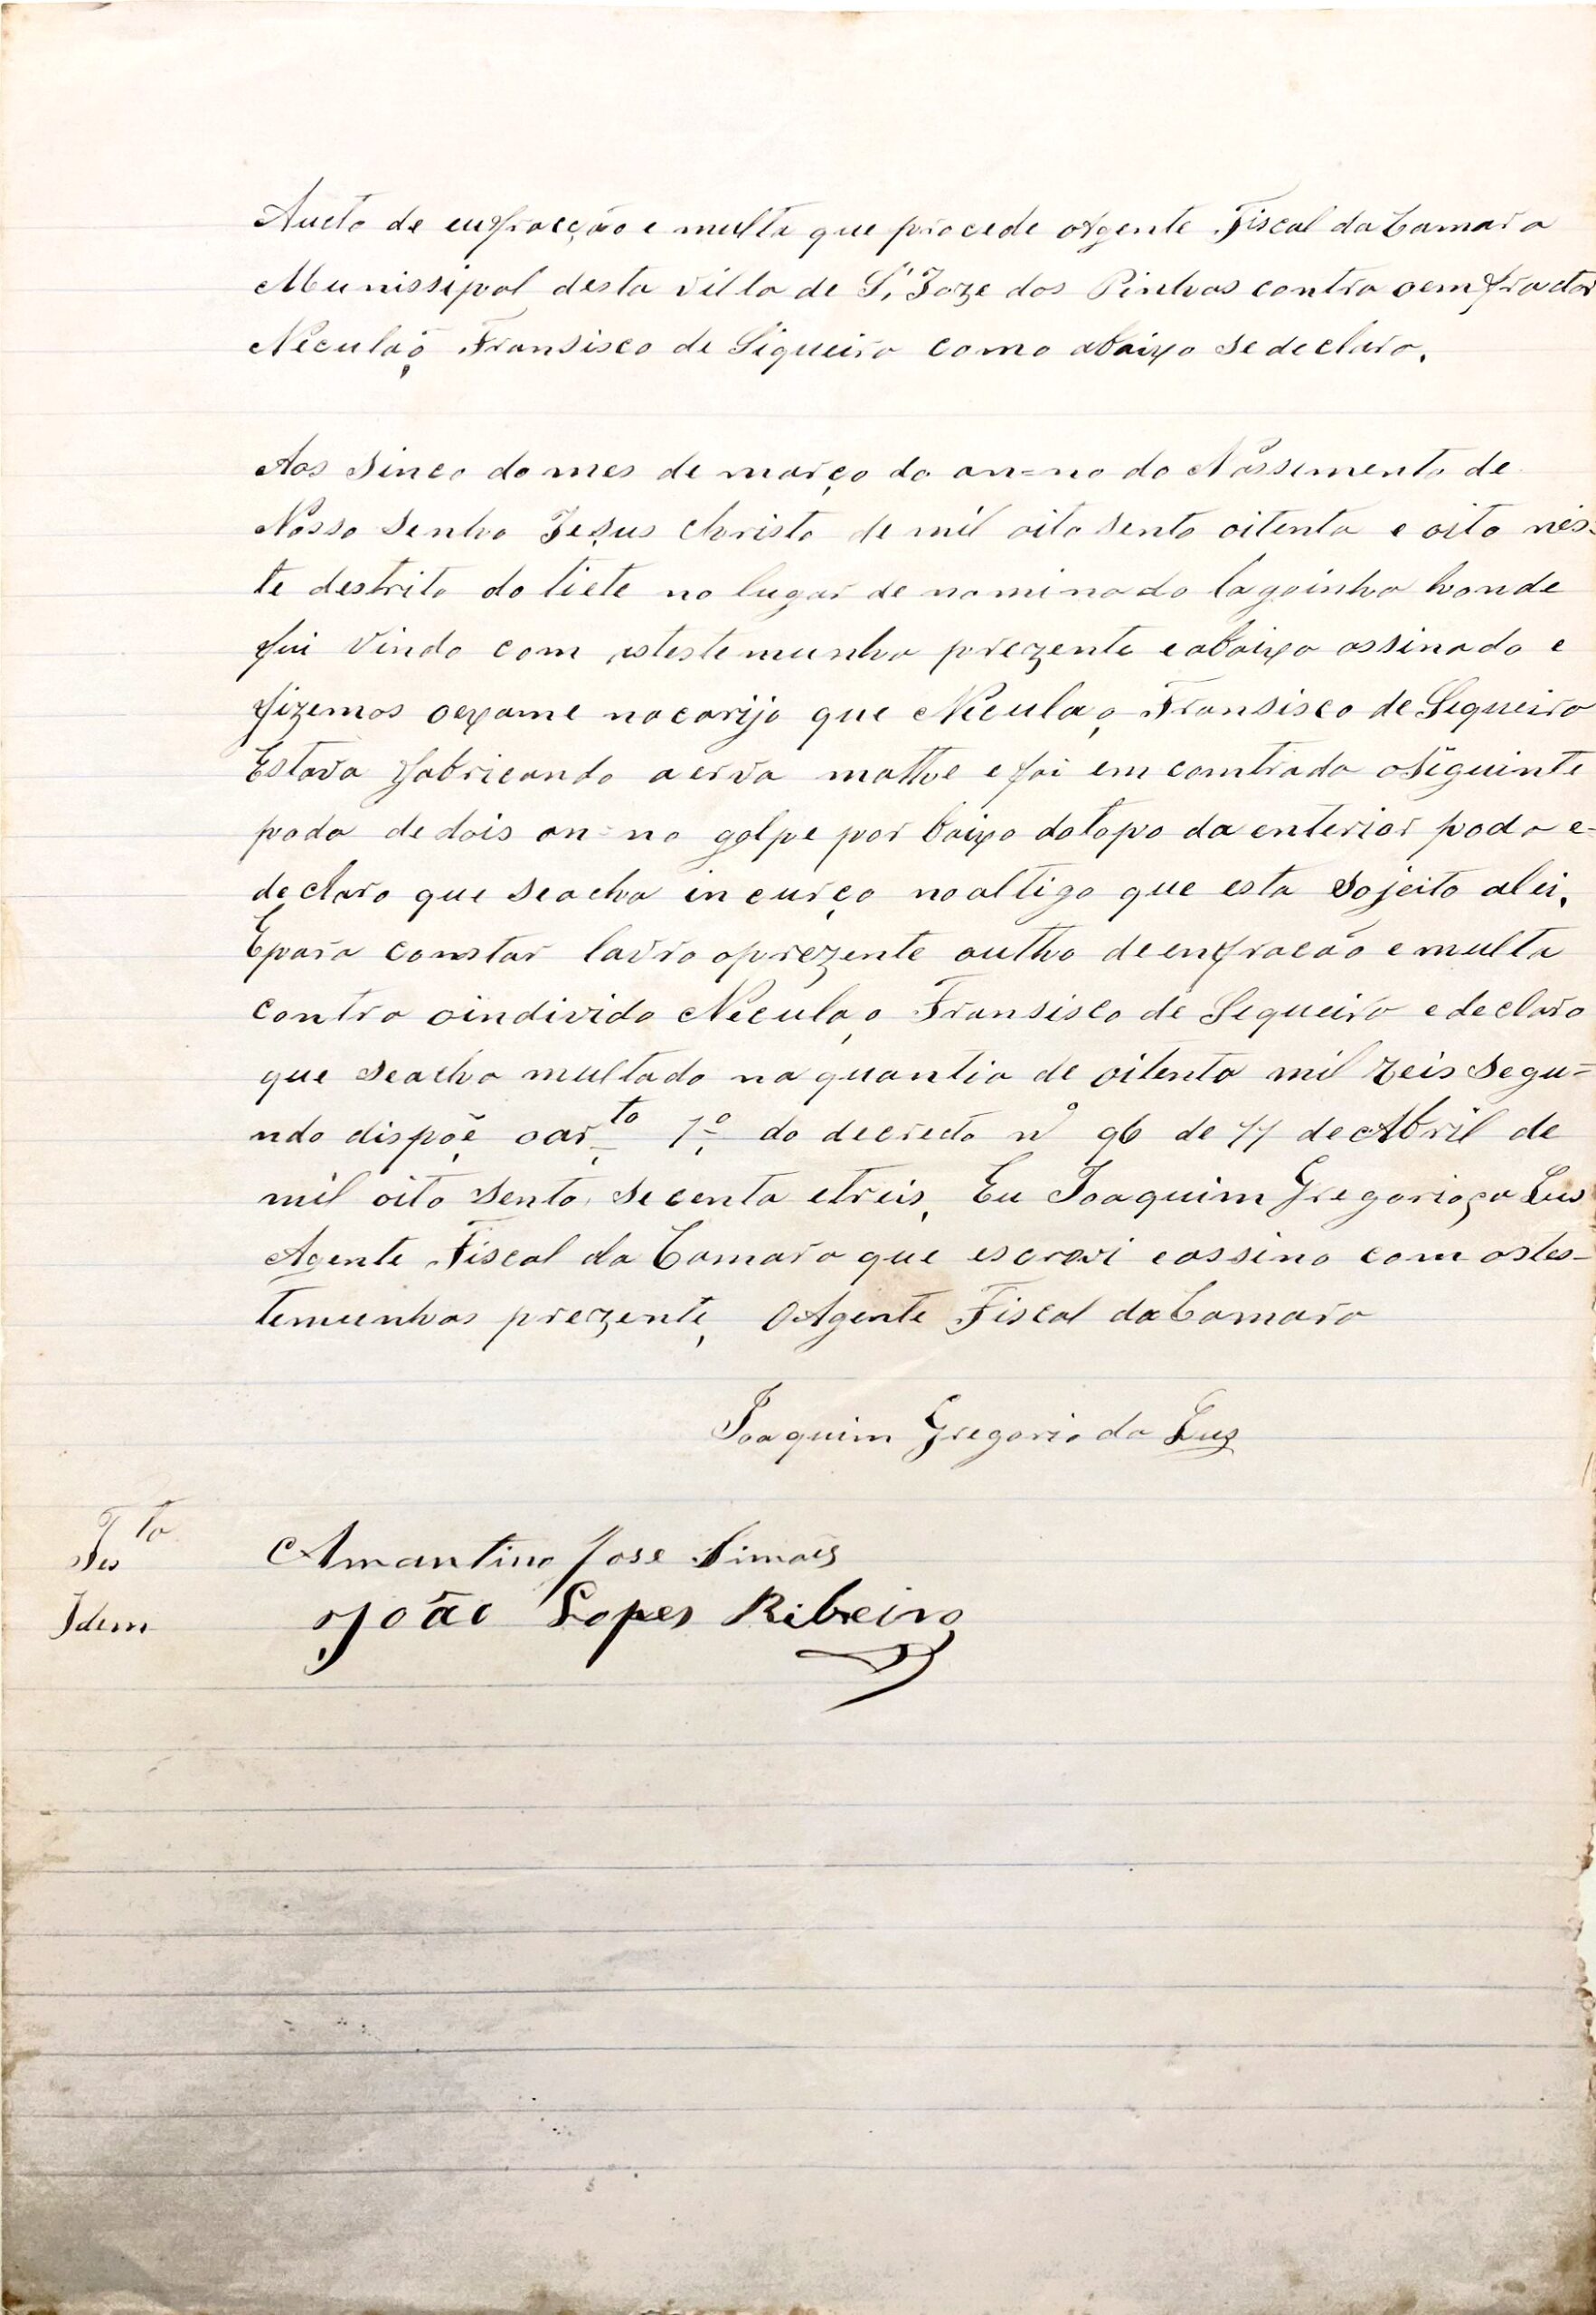 Aucto de enfracção e multa que procede oAgente Fiscal da Camara
Munissipal desta villa de S. Joze dos Pinhaes contra o emfractor
Neculáo Fransisco de Siqueira como abaixo se declara.
Aos sinco do mes de março do an=no do Nássimento de
Nosso Senho Jesus Christo de mil oito sento oitenta e oito nés-
te destrito do tiete no lugar de nominado lagoinha honde
fui vindo com astestemunha prezente eabaixo assinado e
fizemos oexame nacarijo que Neculao Fransisco de Sequeira
Estava fabricando a erva matthe e foi em comtrado oSeguinte
poda de dois an=no golpe por baixo dotopo da enterior poda e-
declaro que seacha incurço noaltigo que esta sojeito alei.
Epara constar lavro oprezente autho deenfracáo e multa
contra oindivido Neculao Fransisco de Sequeira edeclaro
que seacha multado na quantia de oitenta mil reis segu=
ndo dispõe oar.to 1º do decrecto nº 96 de 11 de Abril de
mil oito sento, secenta etreis, Eu Joaquim Gregorio da Lus
Agente Fiscal da Camara que escrevi eassino com astes-
temunhas prezente, OAgente Fiscal da Camara
Joaquim Gregorio da Luz
Tes.ta Amantino Jose Simões
Idem João Lopes Ribeiro